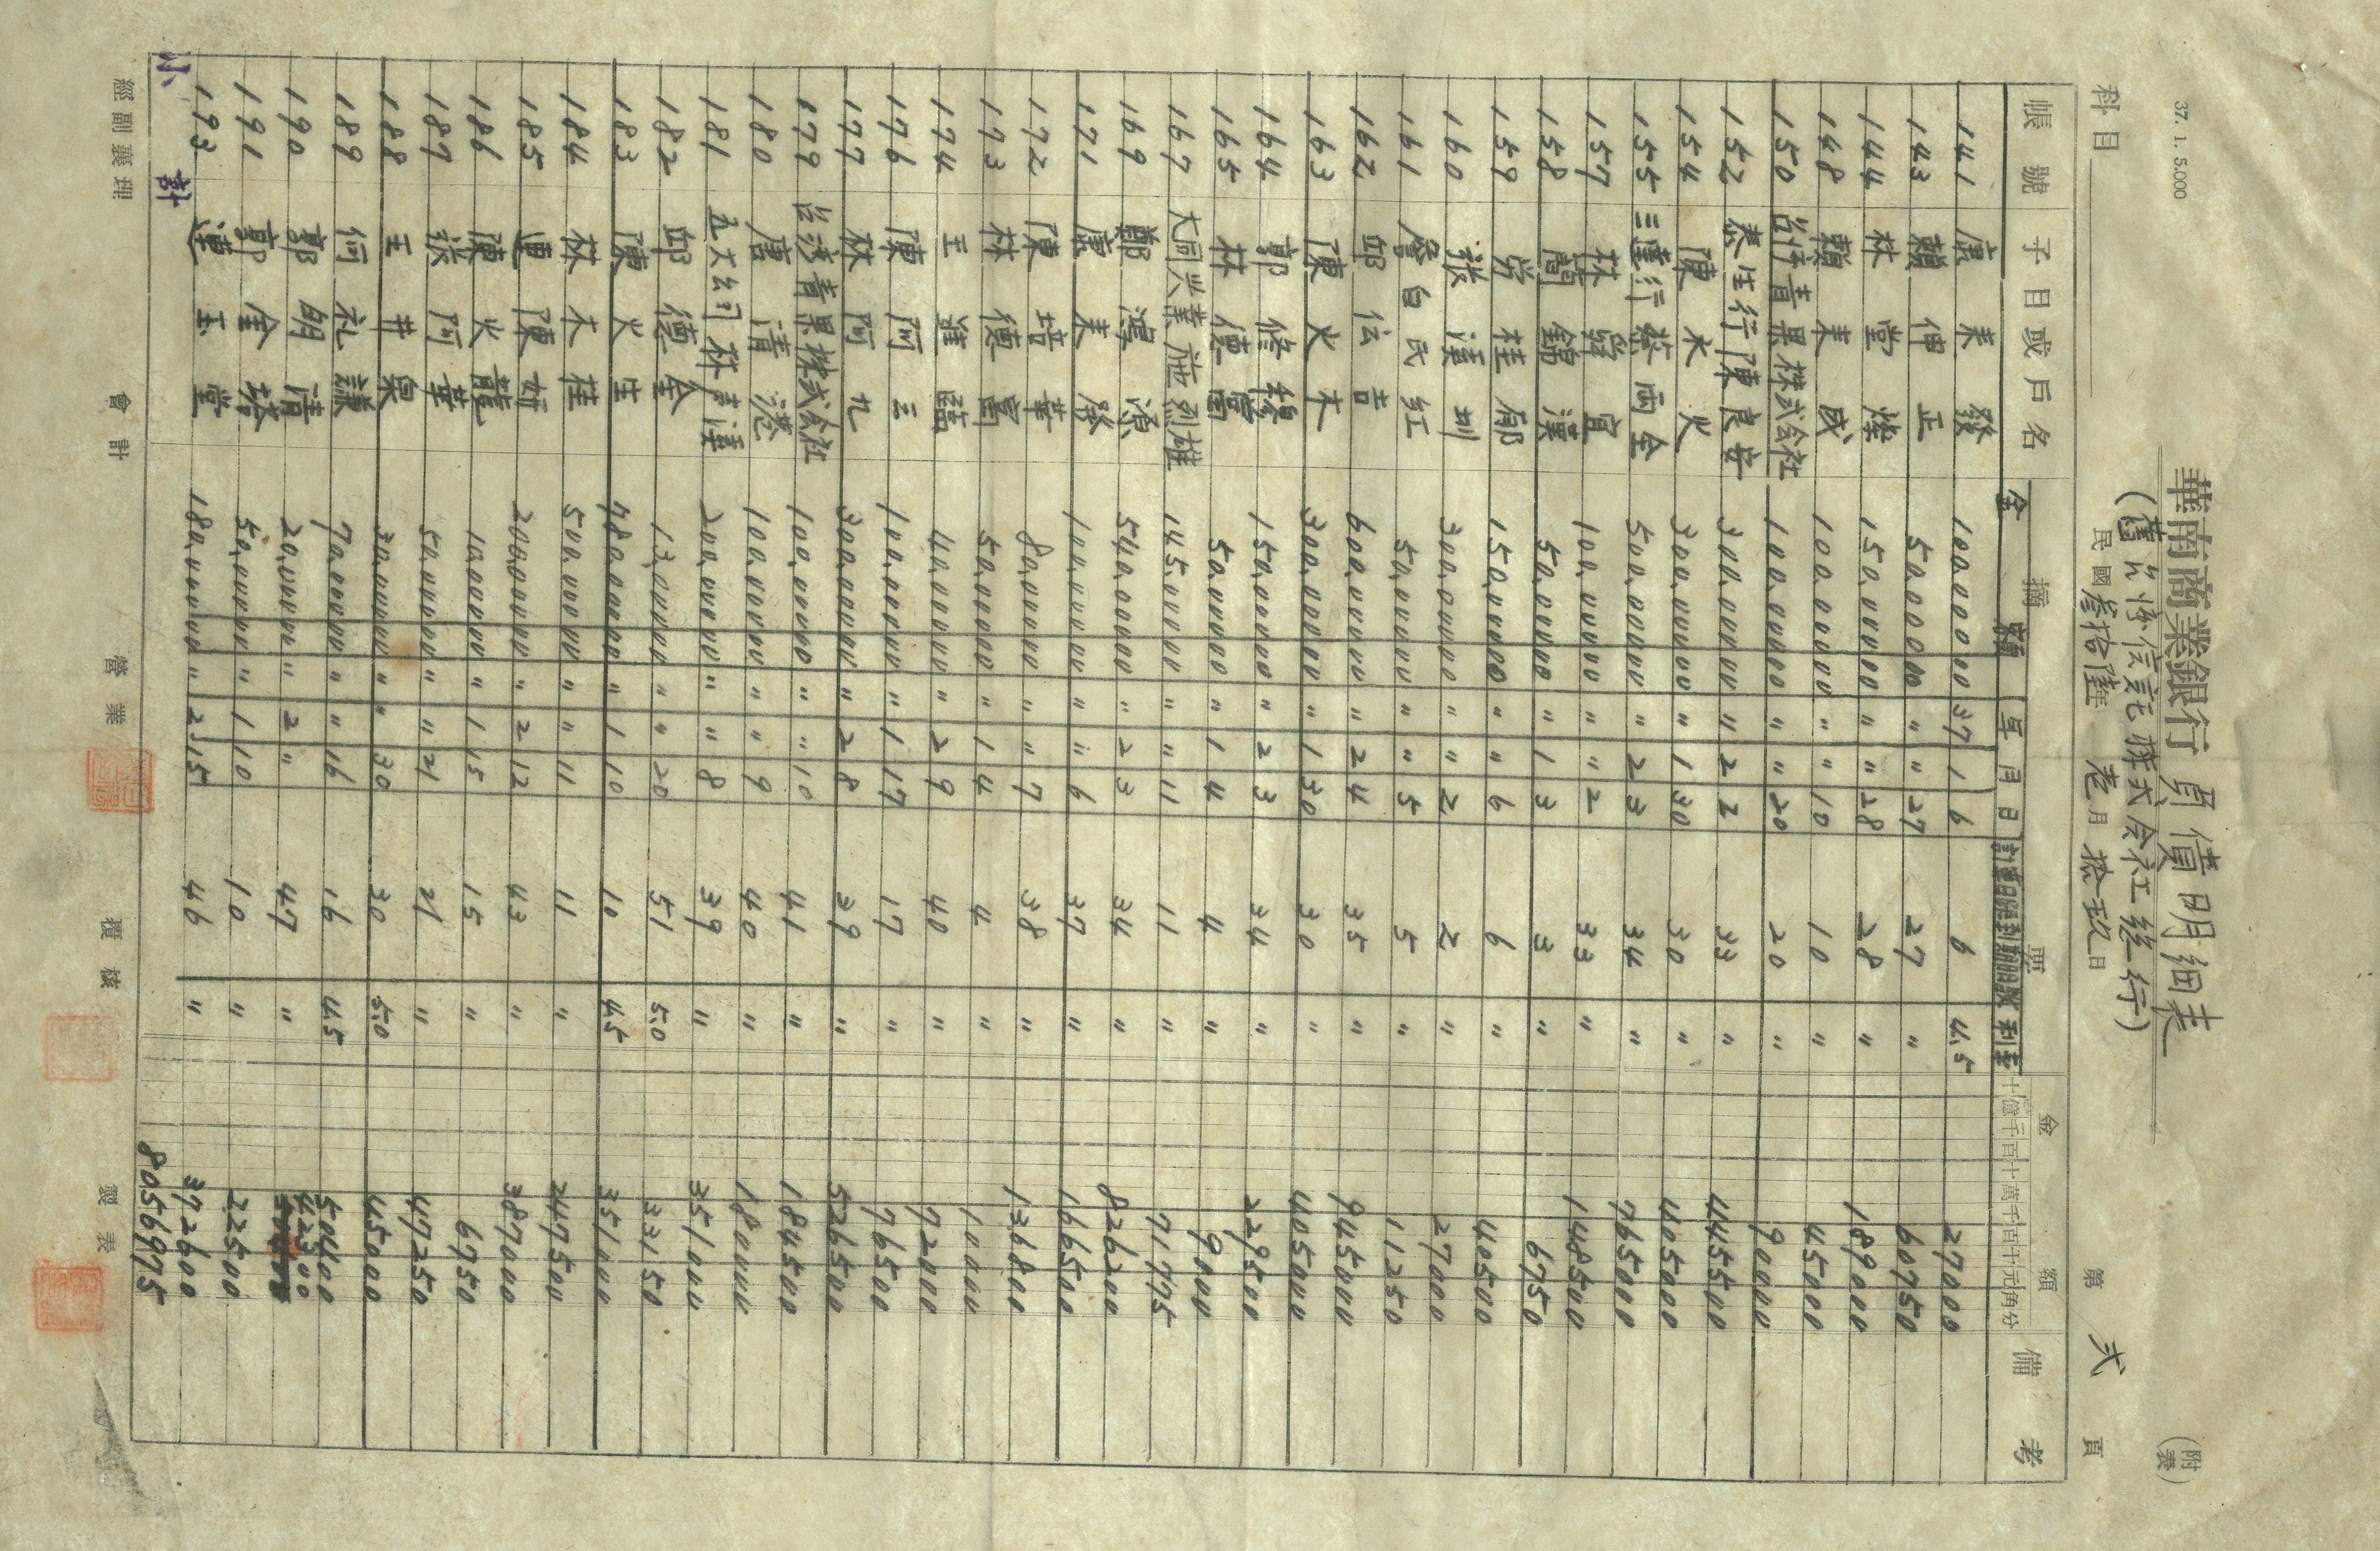 37. 1. 5.000
(附表)
華南商業銀行 負債明細表
(舊台灣信託株式会社総行)
科目
民國叁拾陸年 壱月 拾玖日
第 弐 頁
帳號 子目或戶名 摘要 金額 備考
金額 年 月 日 計算日迄到期日数 利率 十億千百十萬千百十元角分
141 康来發 100,000 00 37 1 6 6 4.5 270 00
143 賴伸正 50,000 00 〃 〃 27 27 〃 607 50
144 林堂燦 150,000 00 〃 〃 28 28 〃 1890 00
148 賴来成 100,000 00 〃 〃 10 10 〃 450 00
150 台湾青果株式会社 100,000 00 〃 〃 20 20 〃 900 00
152 泰生行陳良安 300,000 00 〃 2 2 33 〃 4455 00
154 陳水火 300,000 00 〃 1 30 30 〃 4050 00
155 三蓬行蔡両全 500,000 00 〃 2 3 34 〃 7650 00
157 林舜宜 100,000 00 〃 〃 2 33 〃 1485 00
158 簡錦漢 50,000 00 〃 1 3 3 〃 67 50
159 常桂廊 150,000 00 〃 〃 6 6 〃 405 00
160 張漢圳 300,000 00 〃 〃 2 2 〃 270 00
161 詹白氏紅 50,000 00 〃 〃 5 5 〃 112 50
162 邱伝吉 600,000 00 〃 2 4 35 〃 9450 00
163 陳火木 300,000 00 〃 1 30 30 〃 4050 00
164 郭修穆 150,000 00 〃 2 3 34 〃 2295 00
165 林德富 50,000 00 〃 1 4 4 〃 90 00
167 大同興業施烈雄 145,000 00 〃 〃 11 11 〃 717 75
169 鄭鴻源 540,000 00 〃 2 3 34 〃 8262 00
171 康来發 100,000 00 〃 〃 6 37 〃 1665 00
172 陳培華 80,000 00 〃 〃 7 38 〃 1368 00
173 林德富 50,000 00 〃 1 4 4 〃 100 00
174 王進臨 40,000 00 〃 2 9 40 〃 720 00
176 陳阿三 100,000 00 〃 1 17 17 〃 765 00
177 林阿九 300,000 00 〃 2 8 39 〃 5265 00
179 台湾青果株式会社 100,000 00 〃 〃 10 41 〃 1845 00
180 唐清港 100,000 00 〃 〃 9 40 〃 1800 00
181 五大公司林声漢 200,000 00 〃 〃 8 39 〃 3510 00
182 邱德金 13,000 00 〃 〃 20 51 5.0 331 50
183 陳火生 780,000 00 〃 1 10 10 4.5 3510 00
184 林木桂 500,000 00 〃 〃 11 11 〃 2475 00
185 連陳好 200,000 00 〃 2 12 43 〃 3870 00
186 陳火龍 10,000 00 〃 1 15 15 〃 67 50
187 張阿華 50,000 00 〃 〃 21 21 〃 472 50
188 王井泉 30,000 00 〃 〃 30 30 5.0 450 00
189 何礼謙 70,000 00 〃 〃 16 16 4.5 504 00
190 郭明清 20,000 00 〃 2 〃 47 〃 423 00
191 郭金塔 50,000 00 〃 1 10 10 〃 225 00
193 連玉堂 180,000 00 〃 2 15 46 〃 3726 00
小計 80569 75
經副襄理 會計 營業 覆核 製表